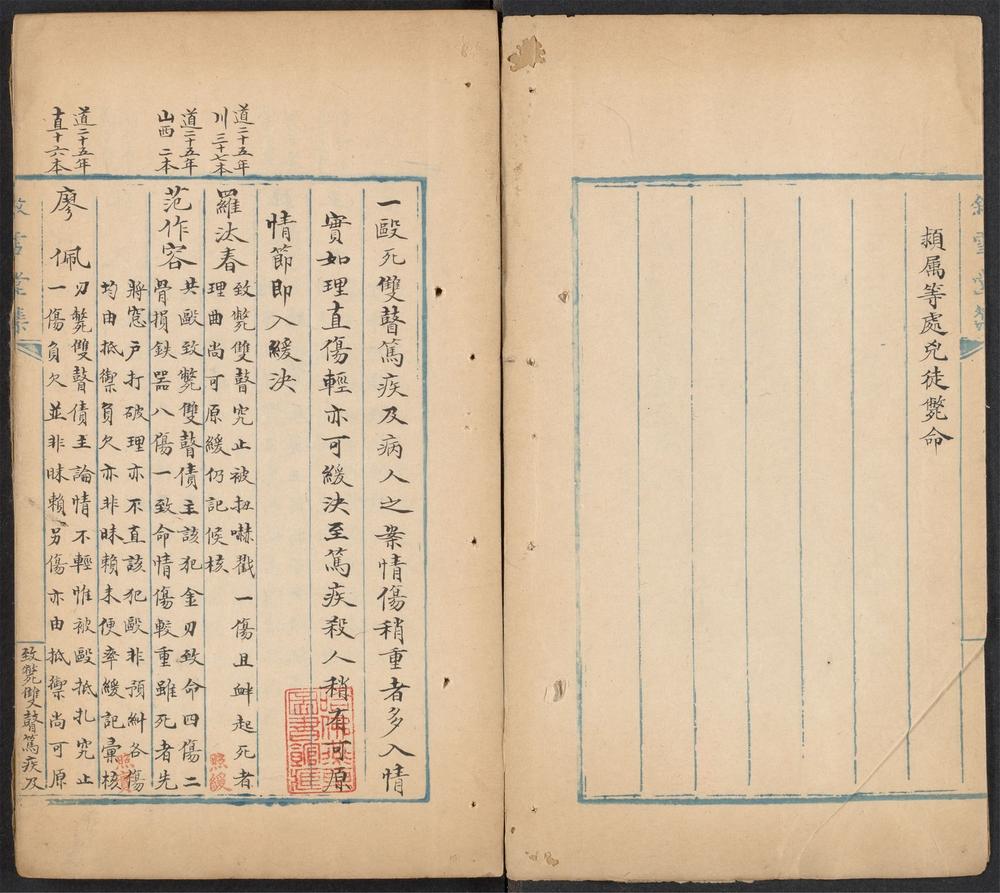 頪属等處兇徒斃命
一毆死雙瞽篤疾及病人之案情傷稍重者多入情
實如理直傷輕亦可緩決至篤疾殺人稍有可原
情節即入緩決
道二十五年
川三十七本
羅汰春
致斃雙瞽究止被扭嚇戳一傷且衅起死者
理曲尚可原緩仍記候核
照緩
道二十五年
山西二本
范作容
共毆致斃雙瞽債主該犯金刃致命四傷二
骨損鉄噐八傷一致命情傷較重雖死者先
將窓户打破理亦不直該犯毆非預糾各傷
均由抵禦負欠亦非昧賴未便率緩記彙核
照
道二十五年
直十六本
廖佩
刃斃雙瞽債主論情不輕惟被毆抵扎究止
一傷負欠並非昧賴另傷亦由抵禦尚可原
致斃雙瞽篤疾及